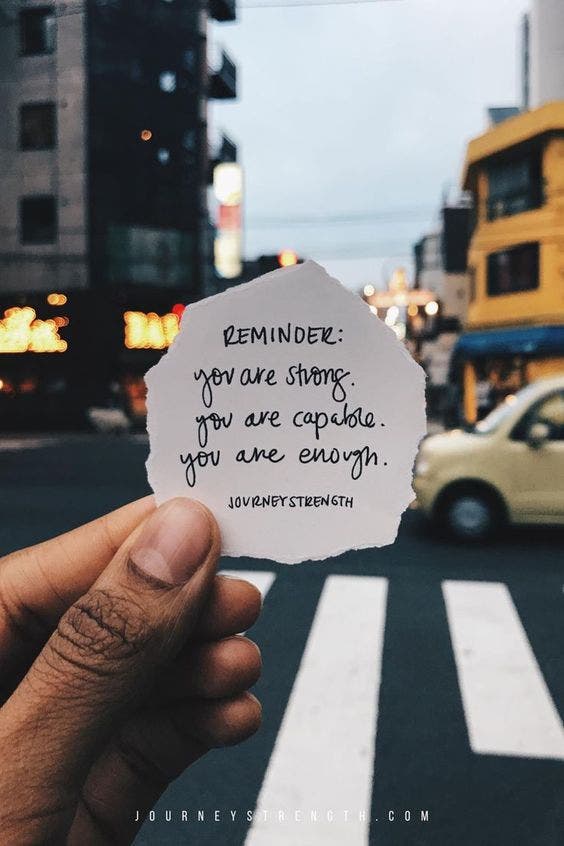 REMINDER:
you are strong.
you are capable.
you are enough.
JOURNEYSTRENGTH
JOURNEYSTRENGTH.COM